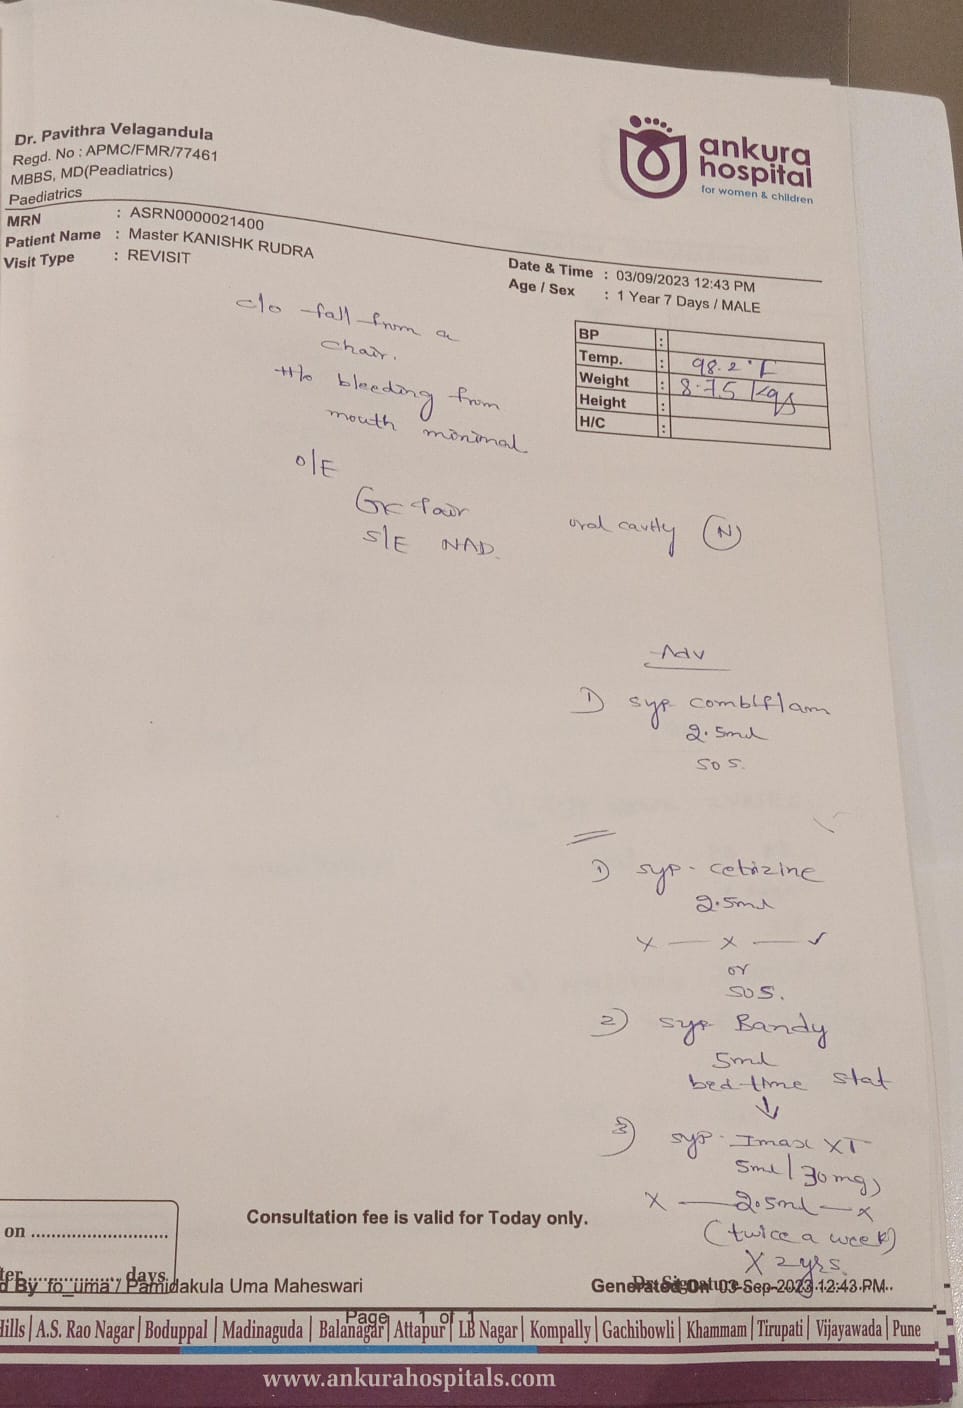 Dr. Pavithra Velagandula
Regd. No : APMC/FMR/77461
MBBS, MD(Peadiatrics)
Paediatrics
ankura
hospital
for women & children
MRN : ASRN0000021400
Patient Name : Master KANISHK RUDRA
Visit Type : REVISIT
Date & Time : 03/09/2023 12:43 PM
Age / Sex : 1 Year 7 Days / MALE
BP :
Temp. : 98.2°F
Weight : 8.75 kgs
Height :
H/C :
c/o fall from a
chair.
H/o bleeding from
mouth minimal
O/E
GC fair
S/E NAD.
oral cavity (N)
Adv
1) syp combiflam
2.5ml
SOS.
1) syp- cetrizine
2.5ml
x — x — ✓
or
SOS.
2) syp Bandy
5ml
bed time stat
↓
3) syp. Imax XT
5ml/30mg)
x — 2.5ml — x
(twice a week)
X 2yrs.
on
Consultation fee is valid for Today only.
days.
d By fo_uma / Pamidakula Uma Maheswari
Generated On 03-Sep-2023 12:43 PM
Page 1 of 1
Hills | A.S. Rao Nagar | Boduppal | Madinaguda | Balanagar | Attapur | LB Nagar | Kompally | Gachibowli | Khammam | Tirupati | Vijayawada | Pune
www.ankurahospitals.com